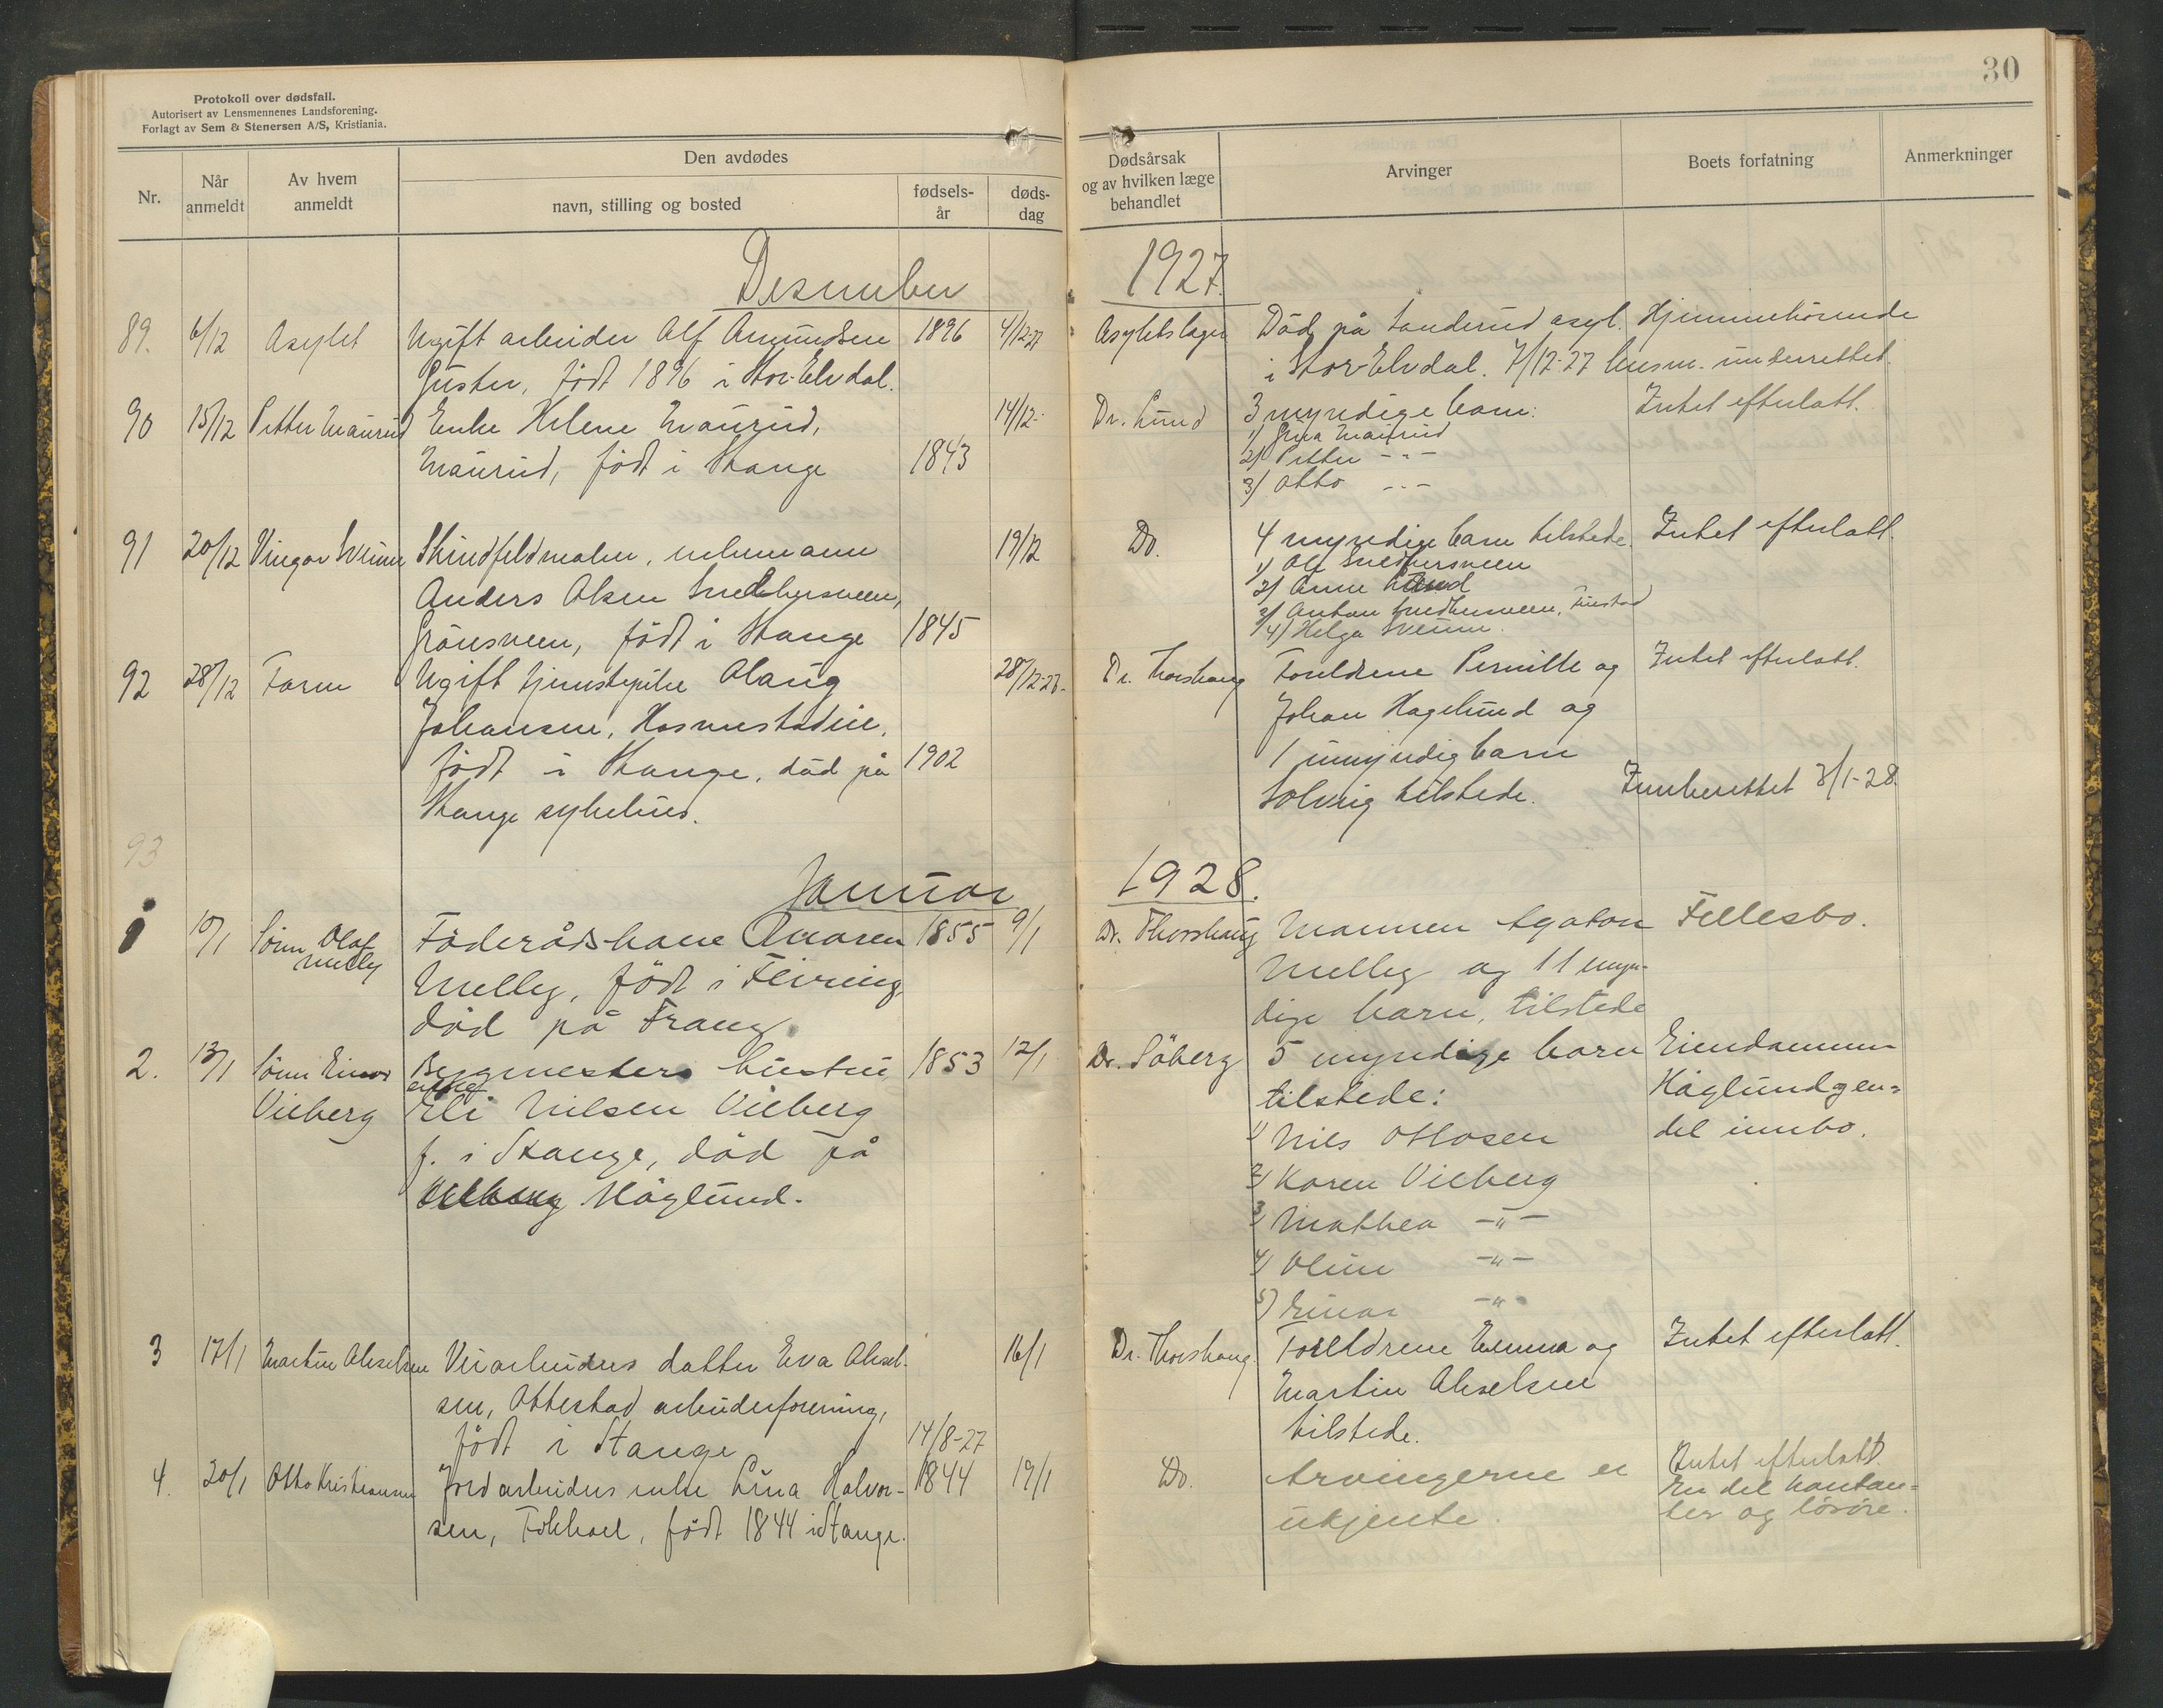 Protokoll over dødsfall.
Autorisert av Lensmennenes Landsforening.
Forlagt av Sem & Stenersen A/S, Kristiania.
Nr.
Når anmeldt
Av hvem anmeldt
Den avdødes
navn, stilling og bosted
fødsels-år
døds-dag
Desember
89. 6/12 Asylet Ugift arbeider Alf Amundsen 1896 4/12-27
Guster, født 1896 i Stor-Elvdal.
90 15/12 Petter Maurud Enke Helene Maurud, 14/12-
Maurud, født i Stange 1843
91 20/12 Vingar Sveum Skindfeldmaler, enkemann 19/12
Anders Olsen Smedhusveen,
Grönsveen, født i Stange 1845
92 28/12 Faren Ugift tjenestepike Olaug 28/12-27-
Johansen, Hosmestadeie,
født i Stange, död på 1902
Stange sykehus.
93
Januar
1 10/1 Sönn Olaf Melby Föderådskone Maren 1855 9/1
Melby, födt i Feiring,
död på Frang.
2. 13/1 Sönn Einar Bygmesters hustru 1853 12/1
enke
Vieberg Eli Nilsen Vieberg
f. i Stange, död på
Vieberg Höglund.
3 17/1 Martin Akselsen Veiarbeiders datter Eva Aksel- 16/1
sen, Ottestad arbeiderforening,
født i Stange 14/8-27
4. 20/1 Otto Kristiansen Jordarbeiders enke Lina Halvor- 1844 19/1
sen, Fokhol, født 1844 i Stange.
30
Dødsårsak
og av hvilken læge
behandlet
Arvinger
Boets forfatning
Anmerkninger
1927.
Asylets läge Död på Sanderud asyl. Hjemmehörende
i Stor-Elvdal. 7/12-27 lensm. underrettet.
Dr. Lund 3 myndige barn: Intet efterlatt.
1) Gina Maurud
2) Petter -"-
3) Otto -"-
Do. 4 myndige barn tilstede. Intet efterlatt.
1) Olf Smedhusveen
2) Anne Lund
3) Anton Smedhusveen,
4) Helga Sveum.
Dr. Thorshaug Foreldrene Pernille og Intet efterlatt.
Johan Hagelund og
1 umyndig barn
Solveig tilstede. Innberettet 3/1-28.
1928.
Dr. Thorshaug Mannen Agaton Fellesbo.
Melby og 11 myn-
dige barn, tilstede
Dr. Söberg 5 myndige barn Eiendommen
tilstede: Höglund og en=
1) Nils Ottosen del innbo.
2) Karen Vieberg
3) Mathea -"-
4) Oline -"-
5) Einar -"-
Dr. Thorshaug. Foreldrene Emma og Intet efterlatt.
Martin Akselsen
tilstede.
Do. Arvingerne er Intet efterlatt.
ukjente. En del kontan=
ter og lösöre.